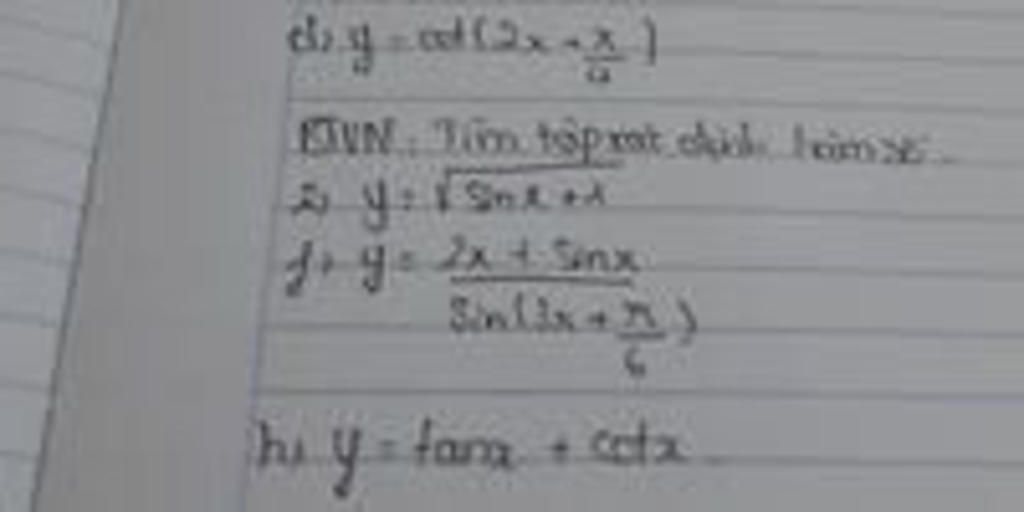 d) y = cot(2x + x/4)
BTVN: Tìm tập xác định hàm số.
y = √sinx + 1
f) y = 2x + sinx / sin(3x + π/6)
h) y = tanx + cotx